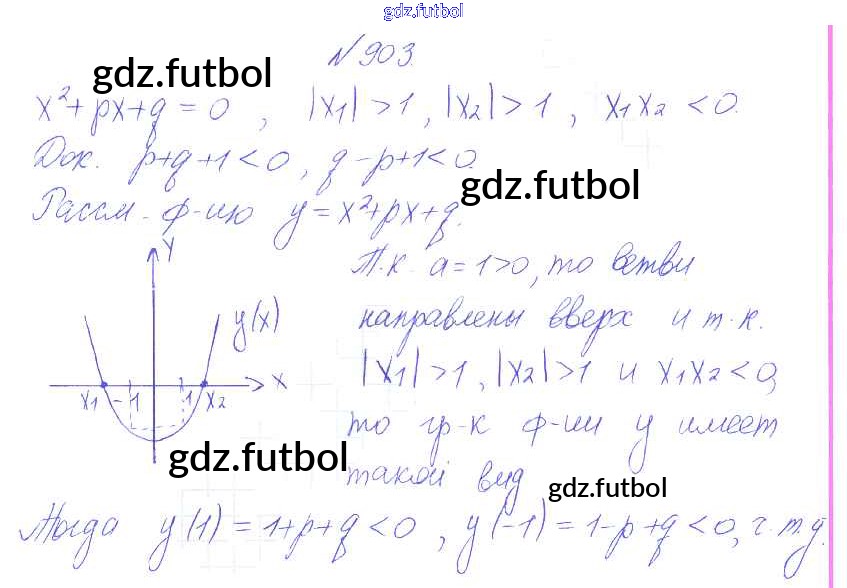 gdz.futbol
№ 903.
gdz.futbol
x²+px+q=0, |x₁|>1, |x₂|>1, x₁x₂<0.
Док. p+q+1<0, q-p+1<0.
gdz.futbol
Рассм. ф-ию y=x²+px+q.
y
Т.к. a=1>0, то ветви
направлены вверх и т.к.
y(x)
|x₁|>1, |x₂|>1 и x₁x₂<0,
x₁ -1 1 x₂ x
то гр-к ф-ии y имеет
gdz.futbol
такой вид
gdz.futbol
Тогда y(1)=1+p+q<0, y(-1)=1-p+q<0, ч.т.д.